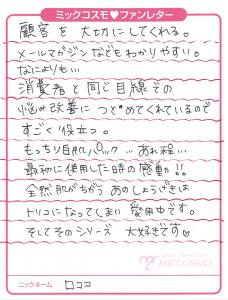 ミックコスモ♥ファンレター
顧客を大切にしてくれる。
メールマガジンなどもわかりやすい。
なによりも…
消費者と同じ目線での
悩み改善につとめてくれているので
すごく役立つ。
もっちり白肌パック…あれ程…
最初に使用した時の感動!!
全然肌がちがう あのしょうげきは
トリコになってしまい 愛用中です。
そしてそのシリーズ 大好きです♡
MICCOSMO
ニックネーム ロココ